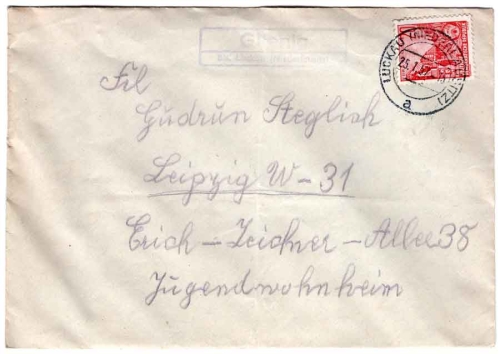 LUCKAU (NIEDERLAUSITZ)
a
Frl
Gudrun Steglich
Leipzig W-31
Erich-Zeigner-Allee 38
Jugendwohnheim